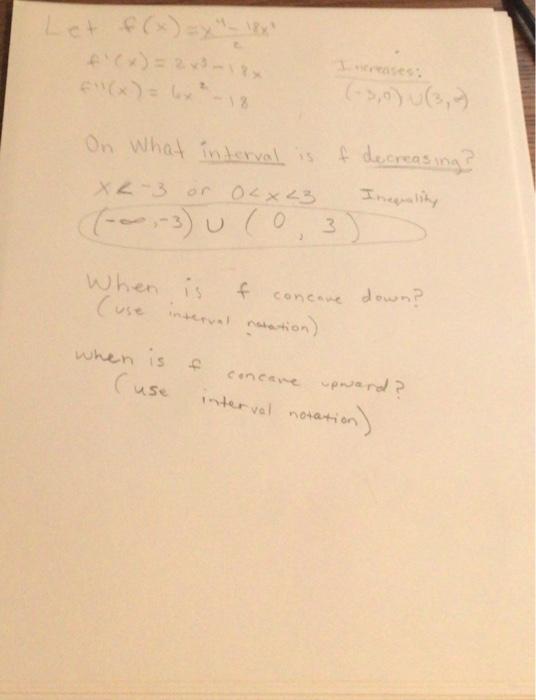 Let f(x) = x⁴ - 18x²
2
f'(x) = 2x³ - 18x
f''(x) = 6x² - 18
Increases:
(-3,0) ∪ (3,∞)
On What interval is f decreasing?
x < -3 or 0 < x < 3 Inequality
(-∞, -3) ∪ (0, 3)
When is f concave down?
(use interval notation)
when is f concave upward?
(use interval notation)